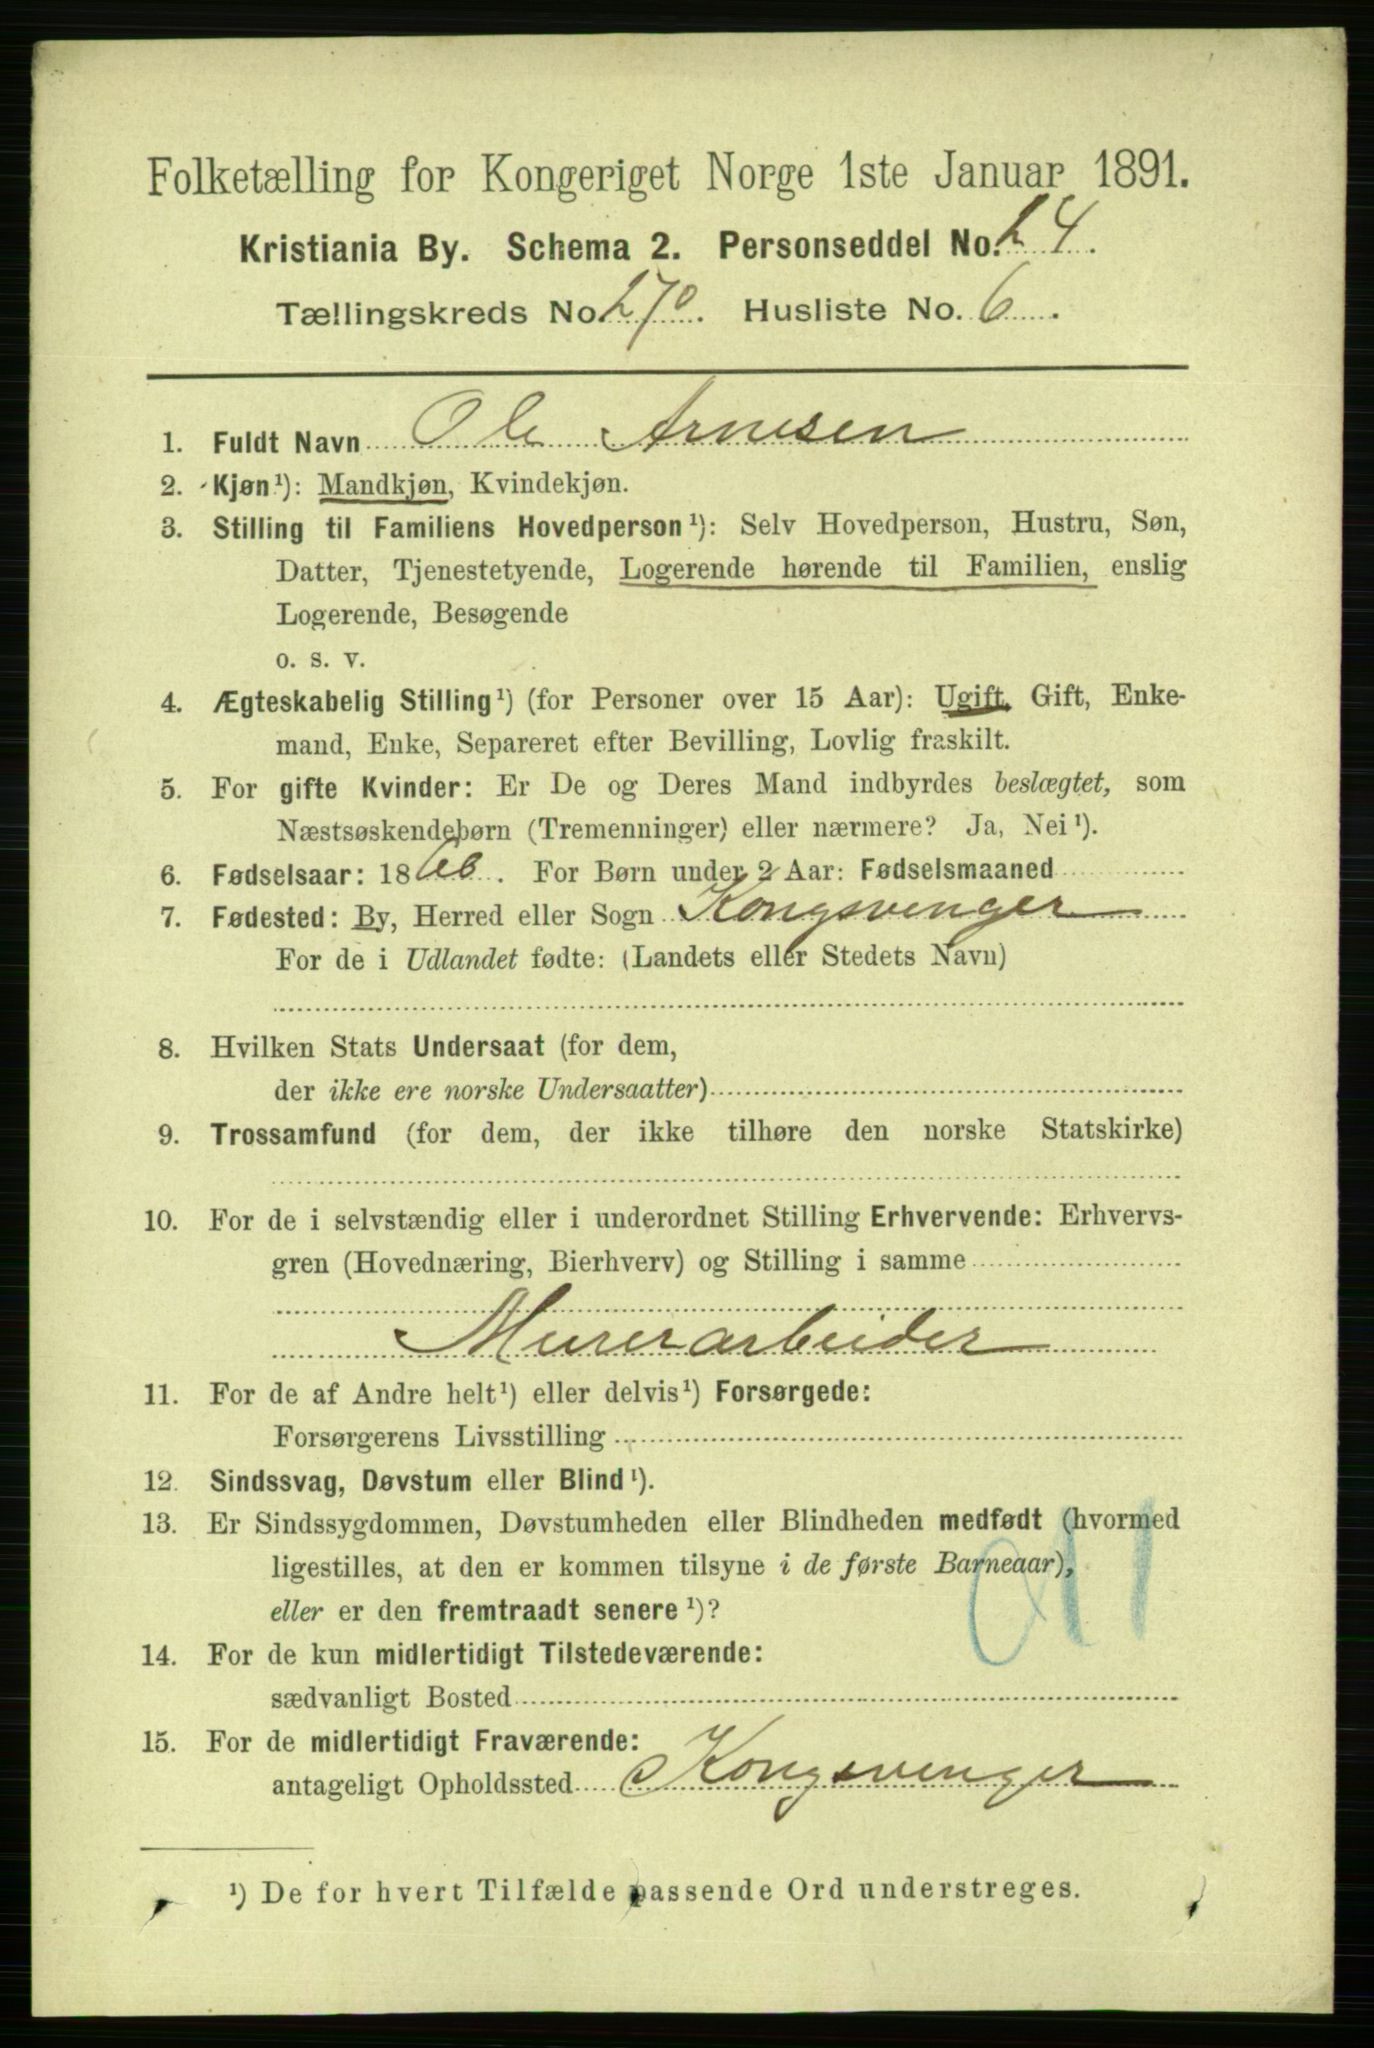 Folketælling for Kongeriget Norge 1ste Januar 1891.
Kristiania By. Schema 2. Personseddel No. 24.
Tællingskreds No. 270. Husliste No. 6.
1. Fuldt Navn Ole Arnesen
2. Kjøn¹): Mandkjøn, Kvindekjøn.
3. Stilling til Familiens Hovedperson¹): Selv Hovedperson, Hustru, Søn,
Datter, Tjenestetyende, Logerende hørende til Familien, enslig
Logerende, Besøgende
o. s. v.
4. Ægteskabelig Stilling¹) (for Personer over 15 Aar): Ugift, Gift, Enke-
mand, Enke, Separeret efter Bevilling, Lovlig fraskilt.
5. For gifte Kvinder: Er De og Deres Mand indbyrdes beslægtet, som
Næstsøskendebørn (Tremenninger) eller nærmere? Ja, Nei¹).
6. Fødselsaar: 1866. For Børn under 2 Aar: Fødselsmaaned
7. Fødested: By, Herred eller Sogn Kongsvenger
For de i Udlandet fødte: (Landets eller Stedets Navn)
8. Hvilken Stats Undersaat (for dem,
der ikke ere norske Undersaatter)
9. Trossamfund (for dem, der ikke tilhøre den norske Statskirke)
10. For de i selvstændig eller i underordnet Stilling Erhvervende: Erhvervs-
gren (Hovednæring, Bierhverv) og Stilling i samme
Murerarbeider
11. For de af Andre helt¹) eller delvis¹) Forsørgede:
Forsørgerens Livsstilling
12. Sindssvag, Døvstum eller Blind¹).
13. Er Sindssygdommen, Døvstumheden eller Blindheden medfødt (hvormed
ligestilles, at den er kommen tilsyne i de første Barneaar),
eller er den fremtraadt senere¹)?
14. For de kun midlertidigt Tilstedeværende:
sædvanligt Bosted
15. For de midlertidigt Fraværende:
antageligt Opholdssted Kongsvenger
¹) De for hvert Tilfælde passende Ord understreges.